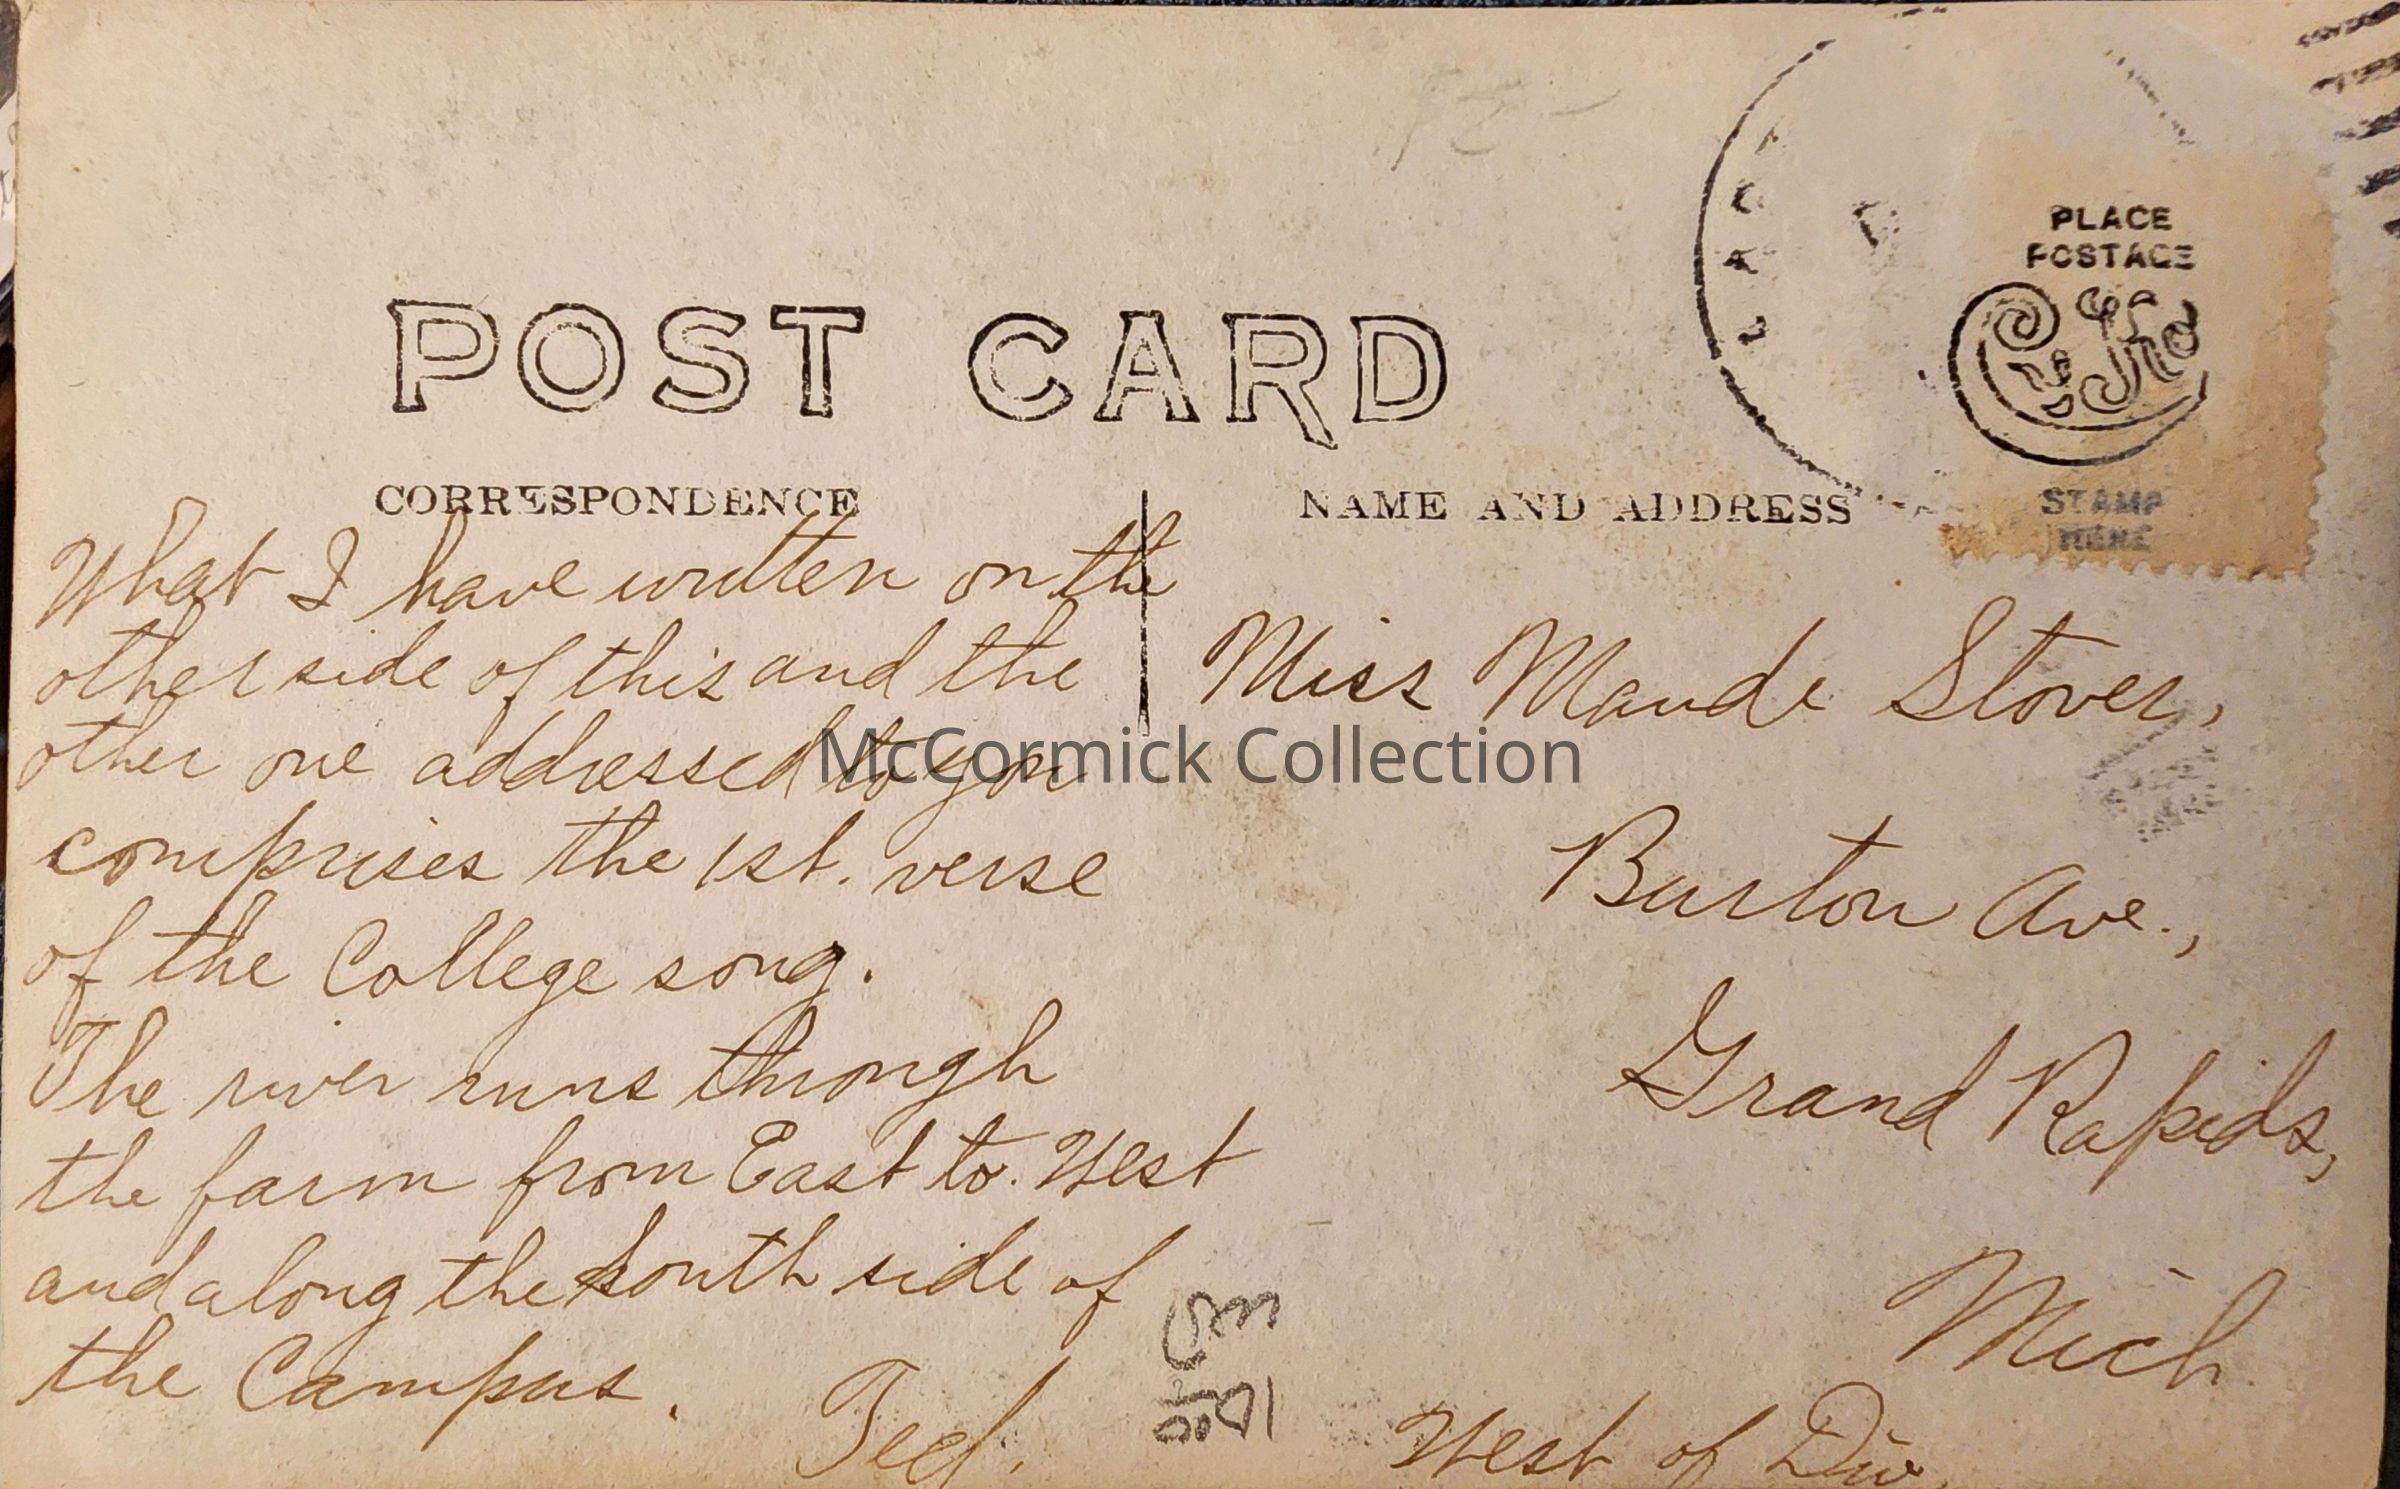 POST CARD
PLACE
POSTAGE
STAMP
HERE
CORRESPONDENCE
NAME AND ADDRESS
What I have written on the
other side of this and the
other one addressed to you
comprises the 1st. verse
of the College song.
The river runs through
the farm from East to West
and along the South side of
the Campus.
Ted.
Miss Maude Stover,
Burton Ave.,
Grand Rapids,
Mich.
West of Div.
McCormick Collection